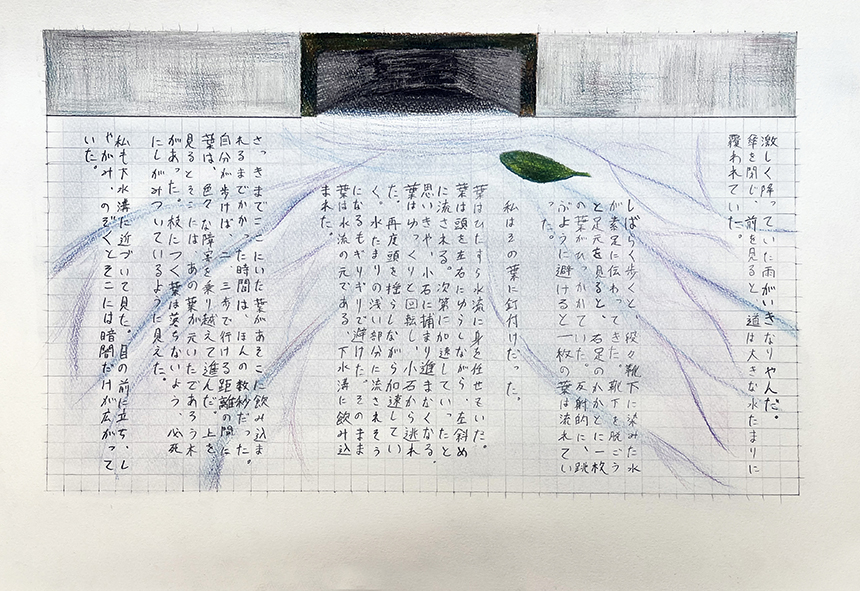 激しく降っていた雨がいきなりやんだ。
傘を閉じ、前を見ると、道は大きな水たまりに
覆われていた。
しばらく歩くと、段々靴下に染みた水
が素足に伝わってきた。靴下を脱ごう
と足元を見ると、右足のかかとに一枚
の葉がひっかれていた。反射的に、跳
ぶように避けると一枚の葉は流れてい
った。
私はその葉に釘付けだった。
葉はひたすら水流に身を任せていた。
葉は頭を左右にゆらしながら、左斜め
に流される。次第に加速していったと
思いきや、小石に捕まり進まなくなる。
葉はゆっくりと回転し、小石から逃れ
た。再度頭を揺らしながら加速してい
く。水たまりの浅い部分に流されそう
になるもギリギリで避けた。そのまま
葉は水流の元である、下水溝に飲み込
まれた。
さっきまでここにいた葉があそこに飲み込ま
れるまでかかった時間は、ほんの数秒だった。
自分が歩けば、二、三歩で行ける距離の間に
葉は、色々な障害を乗り越えて進んだ。上を
見るとそこには、あの葉が元いたであろう木
があった。枝につく葉は落ちないよう、必死
にしがみついているように見えた。
私も下水溝に近づいて見た。目の前に立ち、し
ゃがみ、のぞくとそこには暗闇だけが広がって
いた。